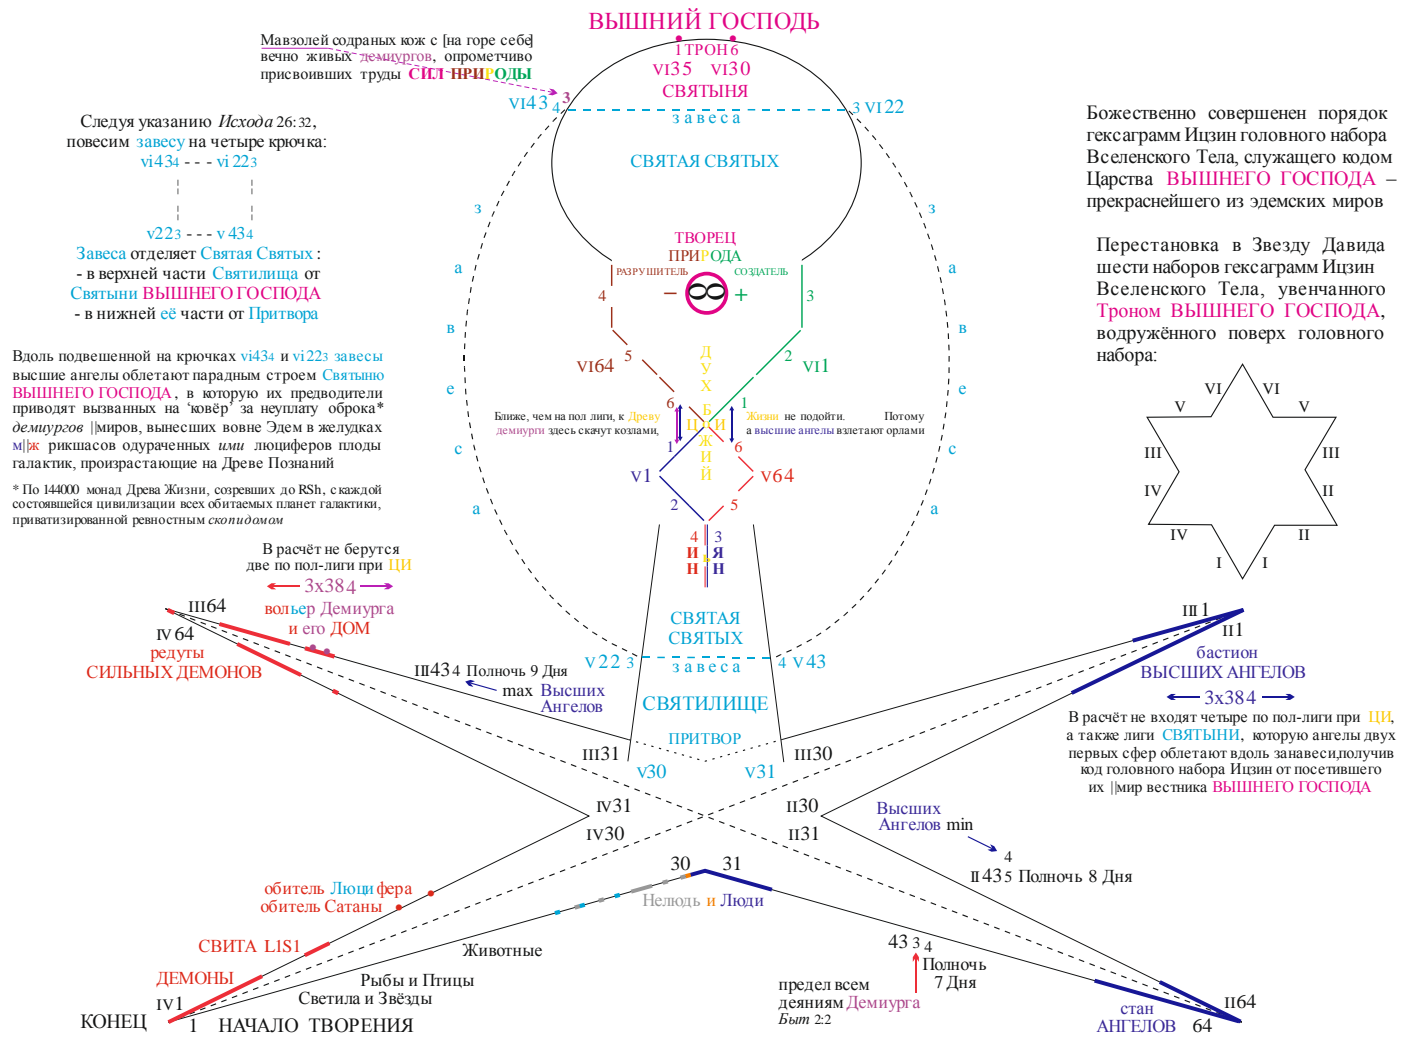 ВЫШНИЙ ГОСПОДЬ
1 ТРОН 6
VI35 VI30
СВЯТЫНЯ
VI43 4 3
3 VI22
завеса
СВЯТАЯ СВЯТЫХ
Мавзолей содраных кож с [на горе себе]
вечно живых демиургов, опрометчиво
присвоивших труды СИЛ ПРИРОДЫ
Следуя указанию Исхода 26:32,
повесим завесу на четыре крючка:
vi434 - - - vi223
v223 - - - v434
Завеса отделяет Святая Святых :
- в верхней части Святилища от
Святыни ВЫШНЕГО ГОСПОДА
- в нижней её части от Притвора
Вдоль подвешенной на крючках vi434 и vi223 завесы
высшие ангелы облетают парадным строем Святыню
ВЫШНЕГО ГОСПОДА, в которую их предводители
приводят вызванных на ‘ковёр’ за неуплату оброка*
демиургов ||миров, вынесших вовне Эдем в желудках
м||ж рикшасов одураченных ими люциферов плоды
галактик, произрастающие на Древе Познаний
* По 144000 монад Древа Жизни, созревших до RSh, с каждой
состоявшейся цивилизации всех обитаемых планет галактики,
приватизированной ревностным скопидомом
Божественно совершенен порядок
гексаграмм Ицзин головного набора
Вселенского Тела, служащего кодом
Царства ВЫШНЕГО ГОСПОДА –
прекраснейшего из эдемских миров
Перестановка в Звезду Давида
шести наборов гексаграмм Ицзин
Вселенского Тела, увенчанного
Троном ВЫШНЕГО ГОСПОДА,
водружённого поверх головного
набора:
VI VI
V V
III III
IV II
IV II
I I
завеса
завеса
ТВОРЕЦ
ПРИРОДА
РАЗРУШИТЕЛЬ СОЗДАТЕЛЬ
− 8 +
4 3
5 2
VI64 VI1
6 1
ДУХ БОЖИЙ
ЦИ
Ближе, чем на пол лиги, к Древу Жизни не подойти. Потому
демиурги здесь скачут козлами, а высшие ангелы взлетают орлами
1 6
V1 V64
2 5
4 3
ИНЬ ЯН
СВЯТАЯ
СВЯТЫХ
V22 3 4 V43
завеса
СВЯТИЛИЩЕ
ПРИТВОР
V30 V31
В расчёт не берутся
две по пол-лиги при ЦИ
3x384
вольер Демиурга
и его ДОМ
III64
IV64
редуты
СИЛЬНЫХ ДЕМОНОВ
III434 Полночь 9 Дня
max Высших
Ангелов
III31 III30
III1
II1
бастион
ВЫСШИХ АНГЕЛОВ
3x384
В расчёт не входят четыре по пол-лиги при ЦИ,
а также лиги СВЯТЫНИ, которую ангелы двух
первых сфер облетают вдоль занавеси,получив
код головного набора Ицзин от посетившего
их ||мир вестника ВЫШНЕГО ГОСПОДА
IV31 II30
IV30 II31
Высших
Ангелов min
4
II435 Полночь 8 Дня
30 31
Нелюдь и Люди
обитель Люцифера
обитель Сатаны
СВИТА L1S1
ДЕМОНЫ
Животные
Рыбы и Птицы
Светила и Звёзды
IV1
КОНЕЦ 1 НАЧАЛО ТВОРЕНИЯ
43 3 4
Полночь
7 Дня
предел всем
деяниям Демиурга
Быт 2:2
стан
АНГЕЛОВ
II64
64